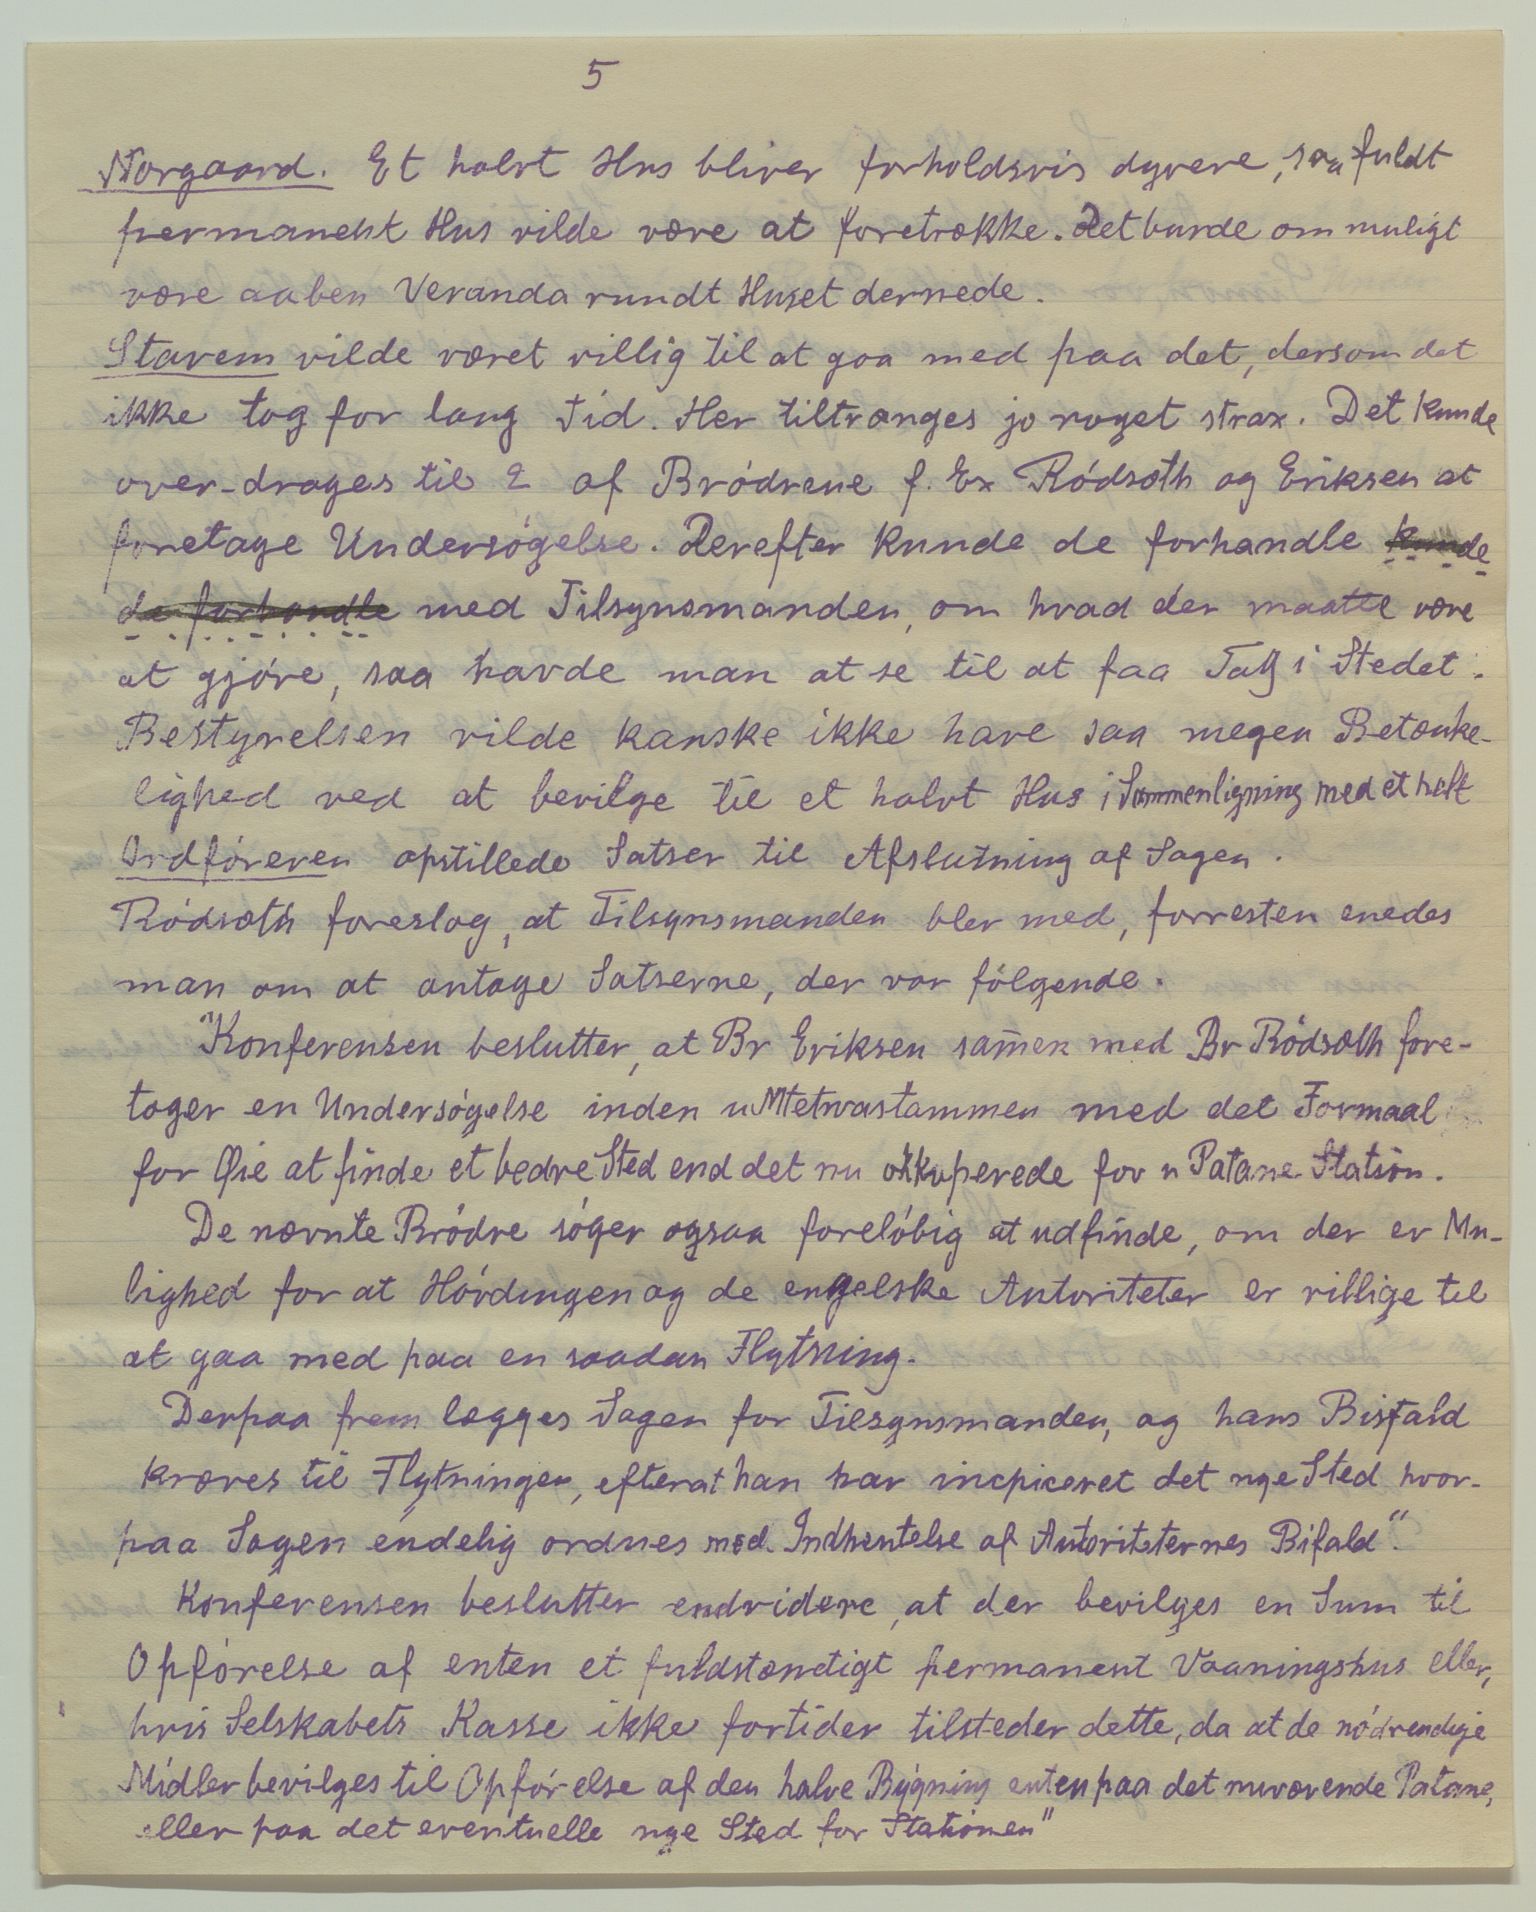 5
Norgaard. Et halvt Hus bliver forholdsvis dyrere, saa fuldt
permanent Hus vilde være at foretrække. Det burde om muligt
være aaben Veranda rundt Huset dernede.
Stavem vilde været villig til at gaa med paa det, dersom det
ikke tog for lang Tid. Her tiltrænges jo noget strax. Det kunde
over-drages til 2 af Brødrene f. Ex Rødsæth og Eriksen at
foretage Undersøgelse. Derefter kunde de forhandle kunde
de forhandle med Tilsynsmanden, om hvad der maatte være
at gjøre, saa havde man at se til at faa Tag i Stedet.
Bestyrelsen vilde kanske ikke have saa megen Betænke-
lighed ved at bevilge til et halvt Hus i Sammenligning med et helt
Ordføreren opstillede Satser til Afslutning af Sagen.
Rødsæth foreslog, at Tilsynsmanden blev med, forresten enedes
man om at antage Satserne, der var følgende.
"Konferensen beslutter, at Br Eriksen sam̄en med Br Rødsæth fore-
tager en Undersøgelse inden uMtetwastammen med det Formaal
for Øie at finde et bedre Sted end det nu okkuperede for u Patane Station.
De nævnte Brødre søger ogsaa foreløbig at udfinde, om der er Mu-
lighed for at Høvdingen og de engelske Autoriteter er villige til
at gaa med paa en saadan Flytning.
Derpaa frem lægges Sagen for Tilsynsmanden, og hans Bisfald
kræves til Flytningen, efterat han har incpiceret det nye Sted hvor-
paa Sagen endelig ordnes med Indhentelse af Autoriteternes Bifald".
Konferensen beslutter endvidere, at der bevilges en Sum til
Opførelse af enten et fuldstændigt permanent Vaaningshus eller,
hvis Selskabets Kasse ikke fortiden tilsteder dette, da at de nødvendige
Midler bevilges til Opførelse af den halve Bygning enten paa det nuværende Patane,
eller paa det eventuelle nye Sted for Stationen"